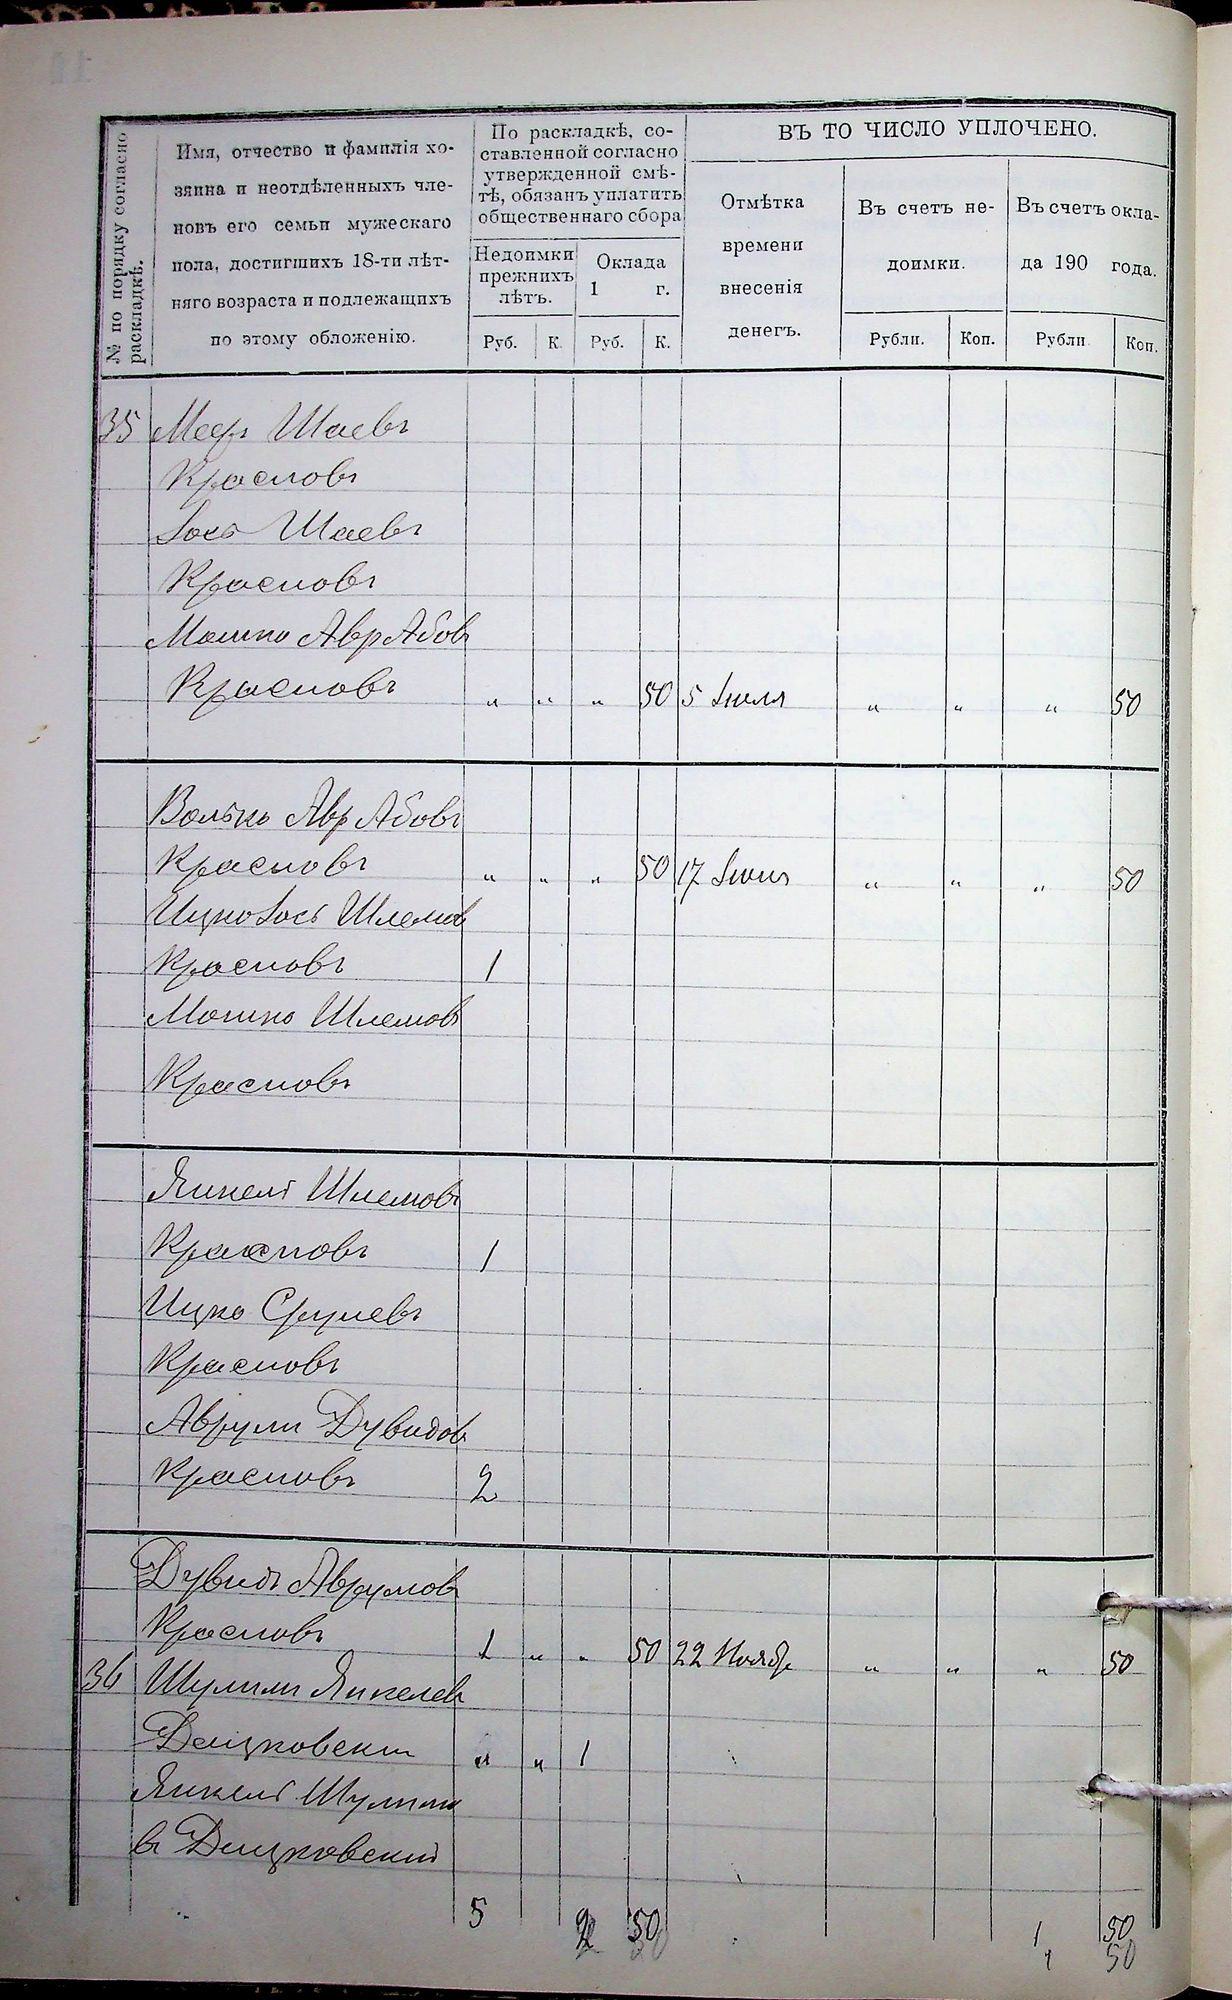 № по порядку согласно раскладкѣ.
Имя, отчество и фамилія хо-
зяина и неотдѣленныхъ чле-
новъ его семьи мужескаго
пола, достигшихъ 18-ти лѣт-
няго возраста и подлежащихъ
по этому обложенію.
По раскладкѣ, со-
ставленной согласно
утвержденной смѣ-
тѣ, обязанъ уплатить
общественнаго сбора
Недоимки
прежнихъ
лѣтъ.
Оклада
1 г.
Руб. К. Руб. К.
ВЪ ТО ЧИСЛО УПЛОЧЕНО.
Отмѣтка
времени
внесенія
денегъ.
Въ счетъ не-
доимки.
Въ счетъ окла-
да 190 года.
Рубли. Коп. Рубли Коп.
35 Меер Шаевъ
Красновъ
Іось Шаевъ
Красновъ
Мошко Аврабов
Красновъ „ „ „ 50 5 Іюля „ „ „ 50
Волько Аврабовъ
Красновъ „ „ „ 50 17 „ „ „ 50
Ицко Іось Шлемов
Красновъ 1
Мошко Шлемовъ
Красновъ
Янкель Шлемовъ
Красновъ 1
Ицко Срулевъ
Красновъ
Аврум Дувидов
Красновъ 2
Дувидъ Аврумовъ
Красновъ 1 „ „ 50 22 Ноябр „ „ „ 50
36 Шулим Янкелев
„ „ 1
Янкель Шулимо
въ
5 2 50 1 50
1 50